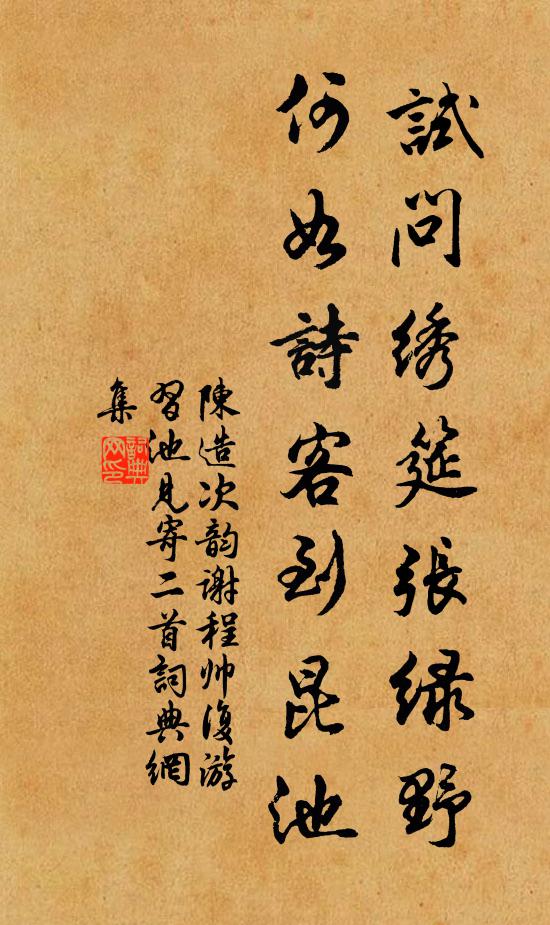 試問綉筵張緑野
何如詩客到昆池
陳造次韵謝程帅復游
習池見寄二首詞典網
集
詞典網印